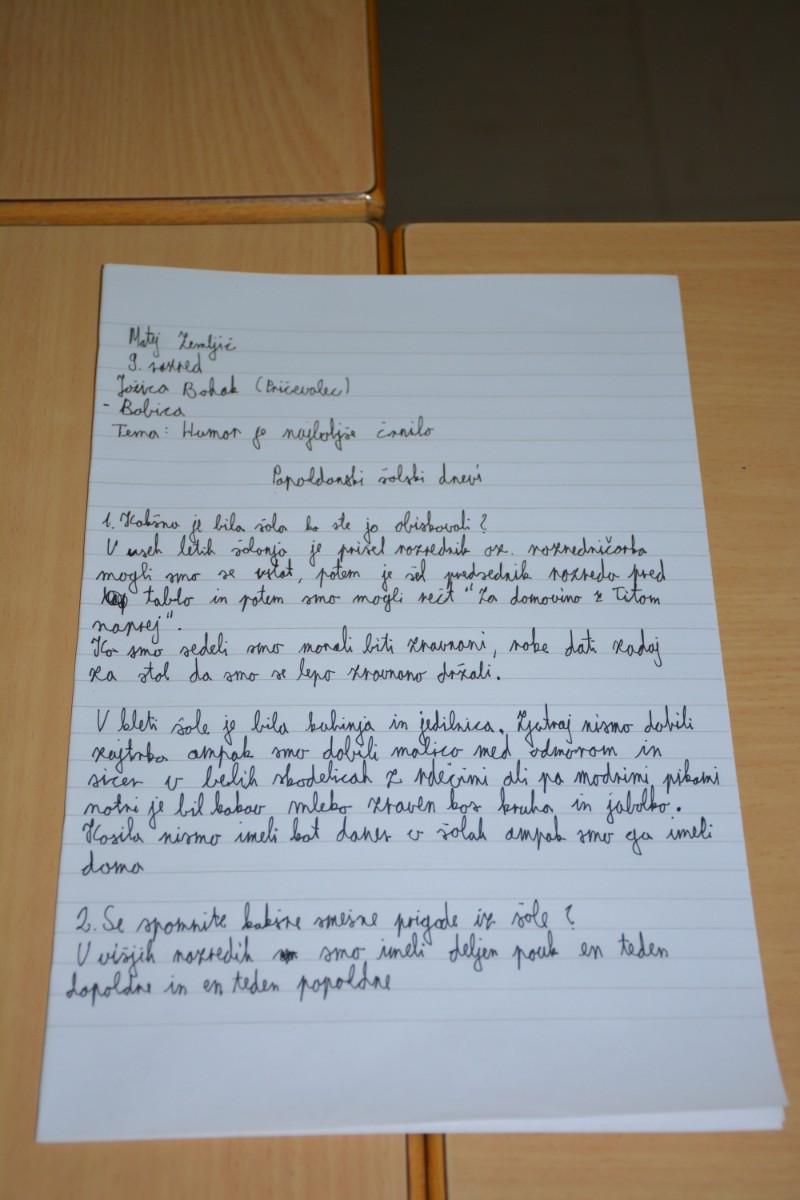 Matej Zemljič
9. razred
Jožica Bohak (Pričevalec)
- Babica
Tema: Humor je najboljše črnilo
Popoldanski šolski dnevi
1. Kakšna je bila šola ko ste jo obiskovali?
V vseh letih šolanja je prišel razrednik oz. razredničarka
mogli smo se vstat, potem je šel predsednik razreda pred
tablo in potem smo mogli rečt "Za domovino z Titom
naprej".
Ko smo sedeli smo morali biti zravnani, roke dati zadaj
za stol da smo se lepo zravnano držali.
V kleti šole je bila kuhinja in jedilnica. Zjutraj nismo dobili
zajtrka ampak smo dobili malico med odmorom in
sicer v belih skodelicah z rdečimi ali pa modrimi pikami
notri je bil kakav mleko zraven kos kruha in jabolko.
Kosila nismo imeli kot danes v šolah ampak smo ga imeli
doma
2. Se spomnite kakšne smešne prigode iz šole?
V višjih razredih smo imeli deljen pouk en teden
dopoldne in en teden popoldne